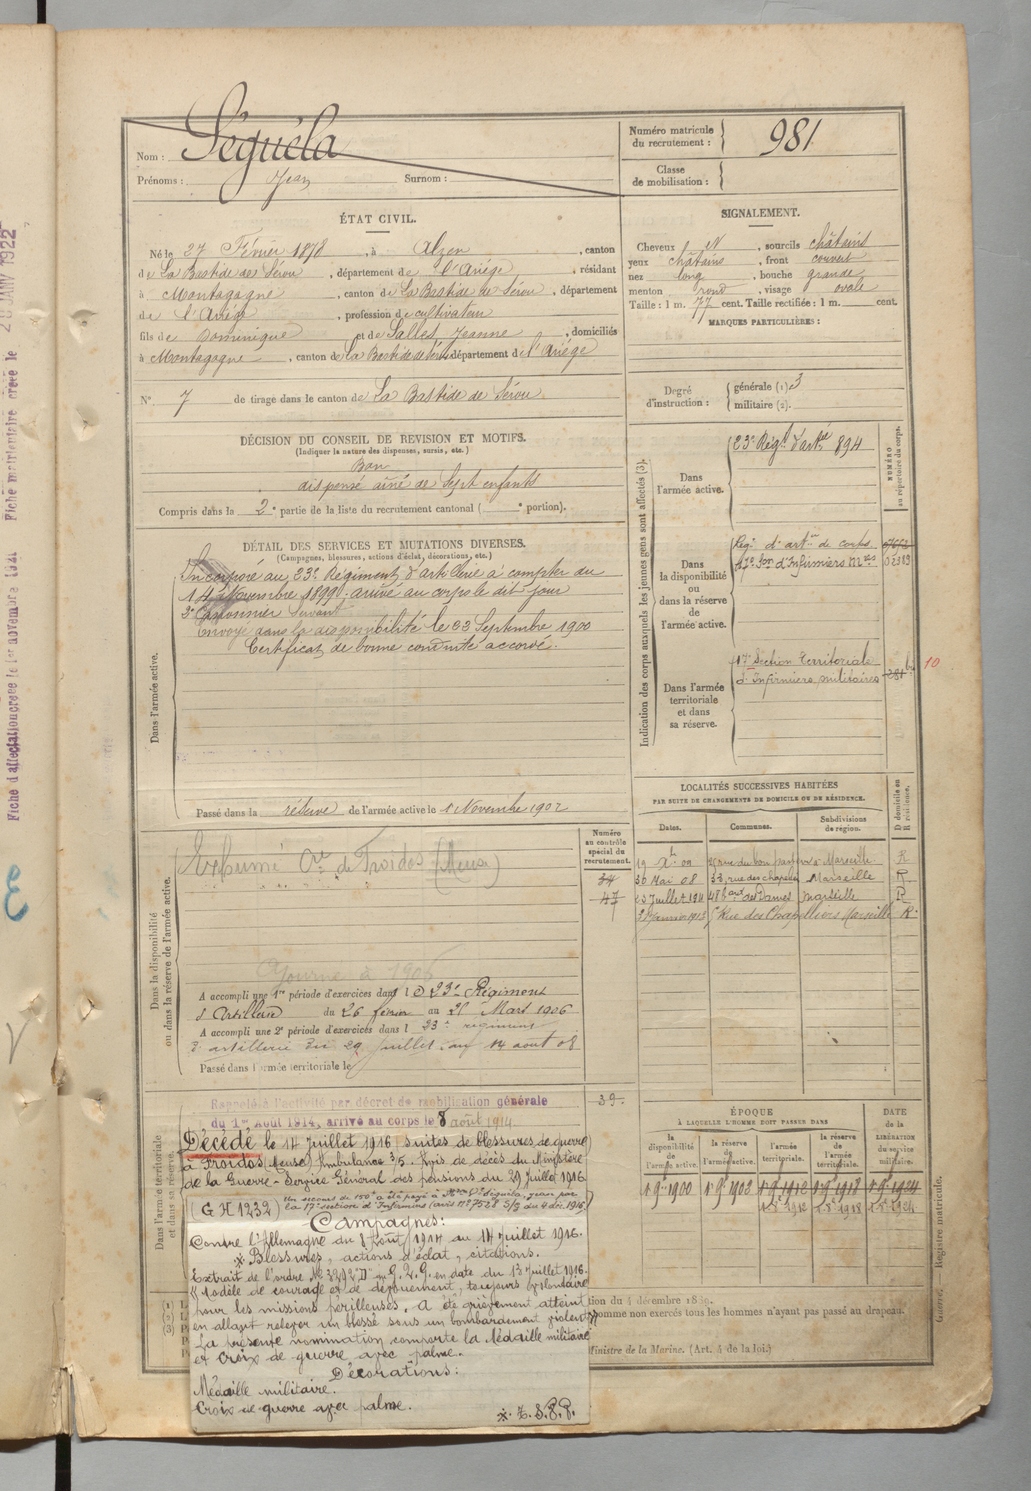 Nom : Séguéla
Prénoms : Jean Surnom :
Numéro matricule du recrutement : 981
Classe de mobilisation :
ÉTAT CIVIL.
Né le 27 Février 1878, à Alzen, canton
de La Bastide de Sérou, département de l'Ariége, résidant
à Montagagne, canton de La Bastide de Sérou, département
de l'Ariége, profession de cultivateur
fils de Dominique et de Salles Jeanne, domiciliés
à Montagagne, canton de La Bastide de Sérou département de l'Ariége
N° 7 de tirage dans le canton de La Bastide de Sérou
SIGNALEMENT.
Cheveux N, sourcils châtains
yeux châtains, front couvert
nez long, bouche grande
menton rond, visage ovale
Taille : 1 m. 77 cent. Taille rectifiée : 1 m. cent.
MARQUES PARTICULIÈRES :
Degré d'instruction : générale (1) 3
militaire (2).
DÉCISION DU CONSEIL DE REVISION ET MOTIFS.
(Indiquer la nature des dispenses, sursis, etc.)
Bon
dispensé aîné de sept enfants
Compris dans la 2e partie de la liste du recrutement cantonal ( e portion).
DÉTAIL DES SERVICES ET MUTATIONS DIVERSES.
(Campagnes, blessures, actions d'éclat, décorations, etc.)
Dans l'armée active.
Incorporé au 23e Régiment d'artillerie à compter du
14 Novembre 1899. arrivé au corps le dit jour
2e Canonnier servant
Envoyé dans la disponibilité le 23 Septembre 1900
Certificat de bonne conduite accordé.
Passé dans la réserve de l'armée active le 1 Novembre 1902
Indication des corps auxquels les jeunes gens sont affectés (3).
NUMÉRO au répertoire du corps.
Dans l'armée active.
23e Régt d'artie 894
Dans la disponibilité ou dans la réserve de l'armée active.
Régt d'artie de corps
17e Son d'Infirmiers Mres
Dans l'armée territoriale et dans sa réserve.
17e Section Territoriale
d'Infirmiers militaires
10
LOCALITÉS SUCCESSIVES HABITÉES
PAR SUITE DE CHANGEMENTS DE DOMICILE OU DE RÉSIDENCE.
Dates. Communes. Subdivisions de région. D domicile ou R résidence.
Marseille R
30 Mai 08 33, rue des chapeliers Marseille R
23 Juillet 1911 48 bard des Dames Marseille R
Rue des Chapeliers Marseille R.
Numéro au contrôle spécial du recrutement.
34
47
Dans la disponibilité ou dans la réserve de l'armée active.
Exhumé Cre de Froidos (Meuse)
Ajourné à 1906
A accompli une 1re période d'exercices dans le 23e Régiment
d'Artillerie du 26 février au 25 Mars 1906
A accompli une 2e période d'exercices dans l 23e régiment
d'artillerie du 29 juillet au 14 août 08
Passé dans l'armée territoriale le
Dans l'armée territoriale et dans sa réserve.
39.
Rappelé à l'activité par décret de mobilisation générale
du 1er Août 1914, arrivé au corps le 8 août 1914.
Décédé le 14 juillet 1916 (suites de blessures de guerre)
à Froidos (Meuse) Ambulance 3/5. Avis de décès du Ministère
de la Guerre - Service Général des pensions du 29 Juillet 1916
(G H 1232) Un secours de 150f a été payé à Mme Ve Séguéla, Jean par
la 17e section d'Infirmiers (avis n° 7528 S/3 du 4 déc. 1916)
Campagnes :
Contre l'Allemagne du 8 août 1914 au 14 juillet 1916.
※ Blessures, actions d'éclat, citations.
Extrait de l'ordre N° 3292 "D" du G. Q. G. en date du 13 juillet 1916.
"Modèle de courage et de dévouement, toujours volontaire
pour les missions périlleuses. A été grièvement atteint
en allant relever un blessé sous un bombardement violent"
La présente nomination comporte la Médaille militaire
et Croix de guerre avec palme.
Décorations :
Médaille militaire.
Croix de guerre avec palme.
※. T. S. P. P.
ÉPOQUE
À LAQUELLE L'HOMME DOIT PASSER DANS
DATE DE LA LIBÉRATION du service militaire.
la disponibilité de l'armée active. la réserve de l'armée active. l'armée territoriale. la réserve de l'armée territoriale.
1 9e 1900 1 9e 1902 1 9e 1912 1 9e 1918 1 9e 1924
1 8e 1912 1 8e 1918 1 8e 1924
tion du 4 décembre 1889.
homme non exercés tous les hommes n'ayant pas passé au drapeau.
Ministre de la Marine. (Art. 4 de la loi.)
Registre matricule.
Guerre.
Fiche d'affectation créée le 1er novembre 1921 Fiche matrimoniaire créée le 20 JANV 1922